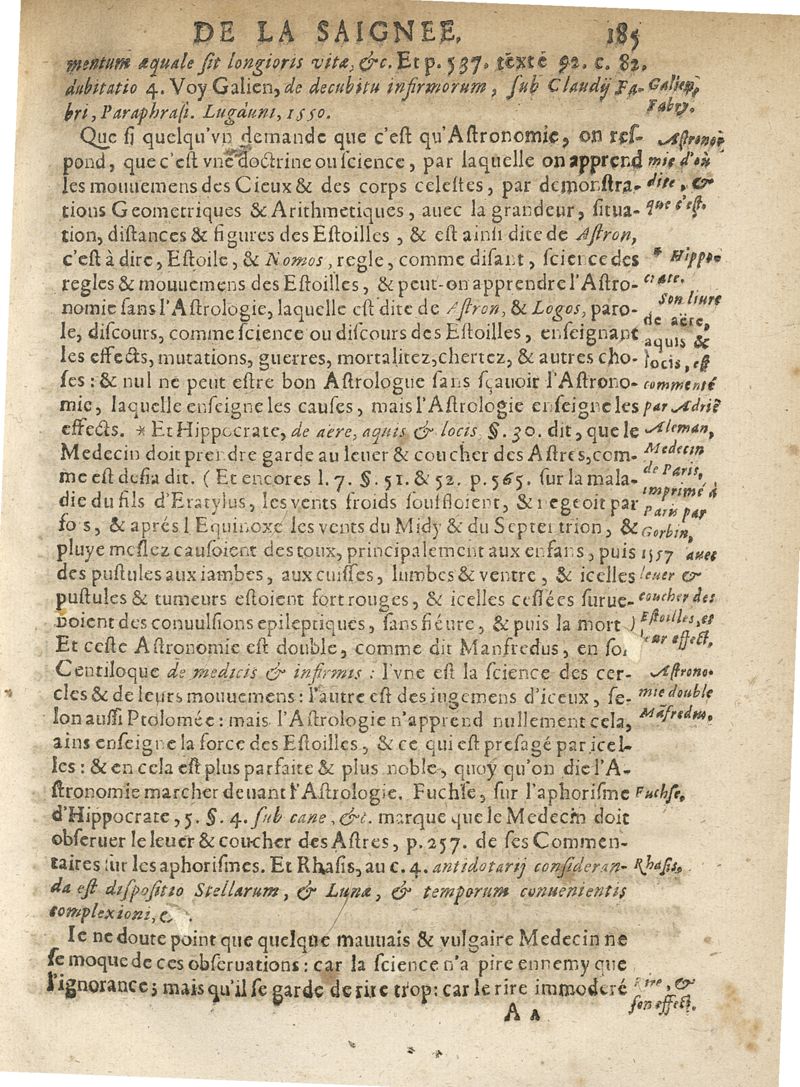 DE LA SAIGNEE. 185
mentum æquale sit longioris vitæ, &c. Et p. 537. texte 92. c. 82.
dubitatio 4. Voy Galien, de decubitu infirmorum, sub Claudij Fa-
bri, Paraphrasi. Lugduni, 1550.
Galien,
Fabry.
Que si quelqu'vn demande que c'est qu'Astronomie, on res-
pond, que c'est vne doctrine ou science, par laquelle on apprend
les mouuemens des Cieux & des corps celestes, par demonstra-
tions Geometriques & Arithmetiques, auec la grandeur, situa-
tion, distances & figures des Estoilles, & est ainsi dite de Astron,
c'est à dire, Estoile, & Nomos, regle, comme disant, science des
regles & mouuemens des Estoilles, & peut-on apprendre l'Astro-
nomie sans l'Astrologie, laquelle est dite de Astron, & Logos, paro-
le, discours, comme science ou discours des Estoilles, enseignant
les effects, mutations, guerres, mortalitez, chertez, & autres cho-
ses: & nul ne peut estre bon Astrologue sans sçauoir l'Astrono-
mie, laquelle enseigne les causes, mais l'Astrologie enseigne les
effects. * Et Hippocrate, de aere, aquis & locis, §. 30. dit, que le
Medecin doit prendre garde au leuer & coucher des Astres, com-
me est desia dit. (Et encores l. 7. §. 51. & 52. p. 565. sur la mala-
die du fils d'Eratylus, les vents froids souffloient, & negeoit par
fois, & aprés l'Equinoxe les vents du Midy & du Septentrion, &
pluye meslez causoient des toux, principalement aux enfans, puis
des pustules aux iambes, aux cuisses, lumbes & ventre, & icelles
pustules & tumeurs estoient fort rouges, & icelles cessées surue-
noient des conuulsions epileptiques, sans fiéure, & puis la mort)
Et ceste Astronomie est double, comme dit Manfredus, en son
Centiloque de medicis & infirmis: l'vne est la science des cer-
cles & de leurs mouuemens: l'autre est des iugemens d'iceux, se-
lon aussi Ptolomée: mais l'Astrologie n'apprend nullement cela,
ains enseigne la force des Estoilles, & ce qui est presagé par icel-
les: & en cela est plus parfaite & plus noble, quoy qu'on die l'A-
stronomie marcher deuant l'Astrologie. Fuchse, sur l'aphorisme
d'Hippocrate, 5. §. 4. sub cane, &c. marque que le Medecin doit
obseruer le leuer & coucher des Astres, p. 257. de ses Commen-
taires sur les aphorismes. Et Rhasis, au c. 4. antidotarij consideran-
da est dispositio Stellarum, & Lunæ, & temporum conuenientis
complexioni, &
Ie ne doute point que quelque mauuais & vulgaire Medecin ne
se moque de ces obseruations: car la science n'a pire ennemy que
l'ignorance; mais qu'il se garde de rire trop: car le rire immoderé
Astrono-
mie d'où
dite, &
que c'est.
* Hippo-
crate.
Son liure
de aëre,
aquis &
locis, est
commenté
par Adriē
Aleman,
Medecin
de Paris,
imprimé à
Paris par
Gorbin,
1557 auec
leuer &
coucher des
Estoilles, et
leur effect.
Astrono-
mie double
Māfredus.
Fuchse,
Rhasis.
Rire, &
son effect.
A a